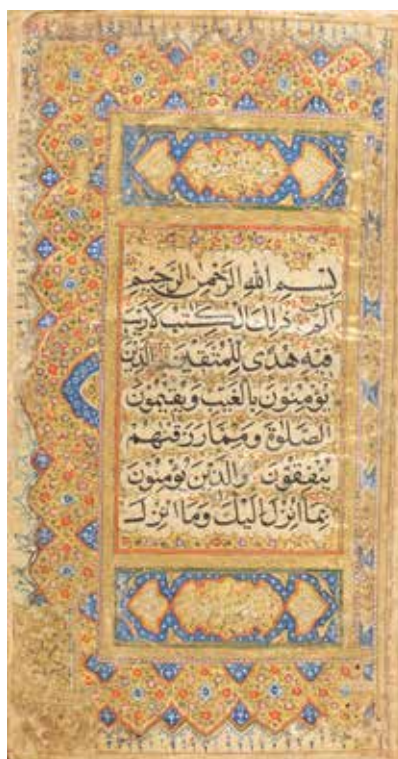 بِسْمِ اللهِ الرَّحْمٰنِ الرَّحِيْمِ
الٓمّٓ ذٰلِكَ الْكِتٰبُ لَا رَيْبَ
فِيْهِ هُدًى لِّلْمُتَّقِيْنَ الَّذِيْنَ
يُؤْمِنُوْنَ بِالْغَيْبِ وَيُقِيْمُوْنَ
الصَّلٰوةَ وَمِمَّا رَزَقْنٰهُمْ
يُنْفِقُوْنَ وَالَّذِيْنَ يُؤْمِنُوْنَ
بِمَا اُنْزِلَ اِلَيْكَ وَمَا اُنْزِلَ